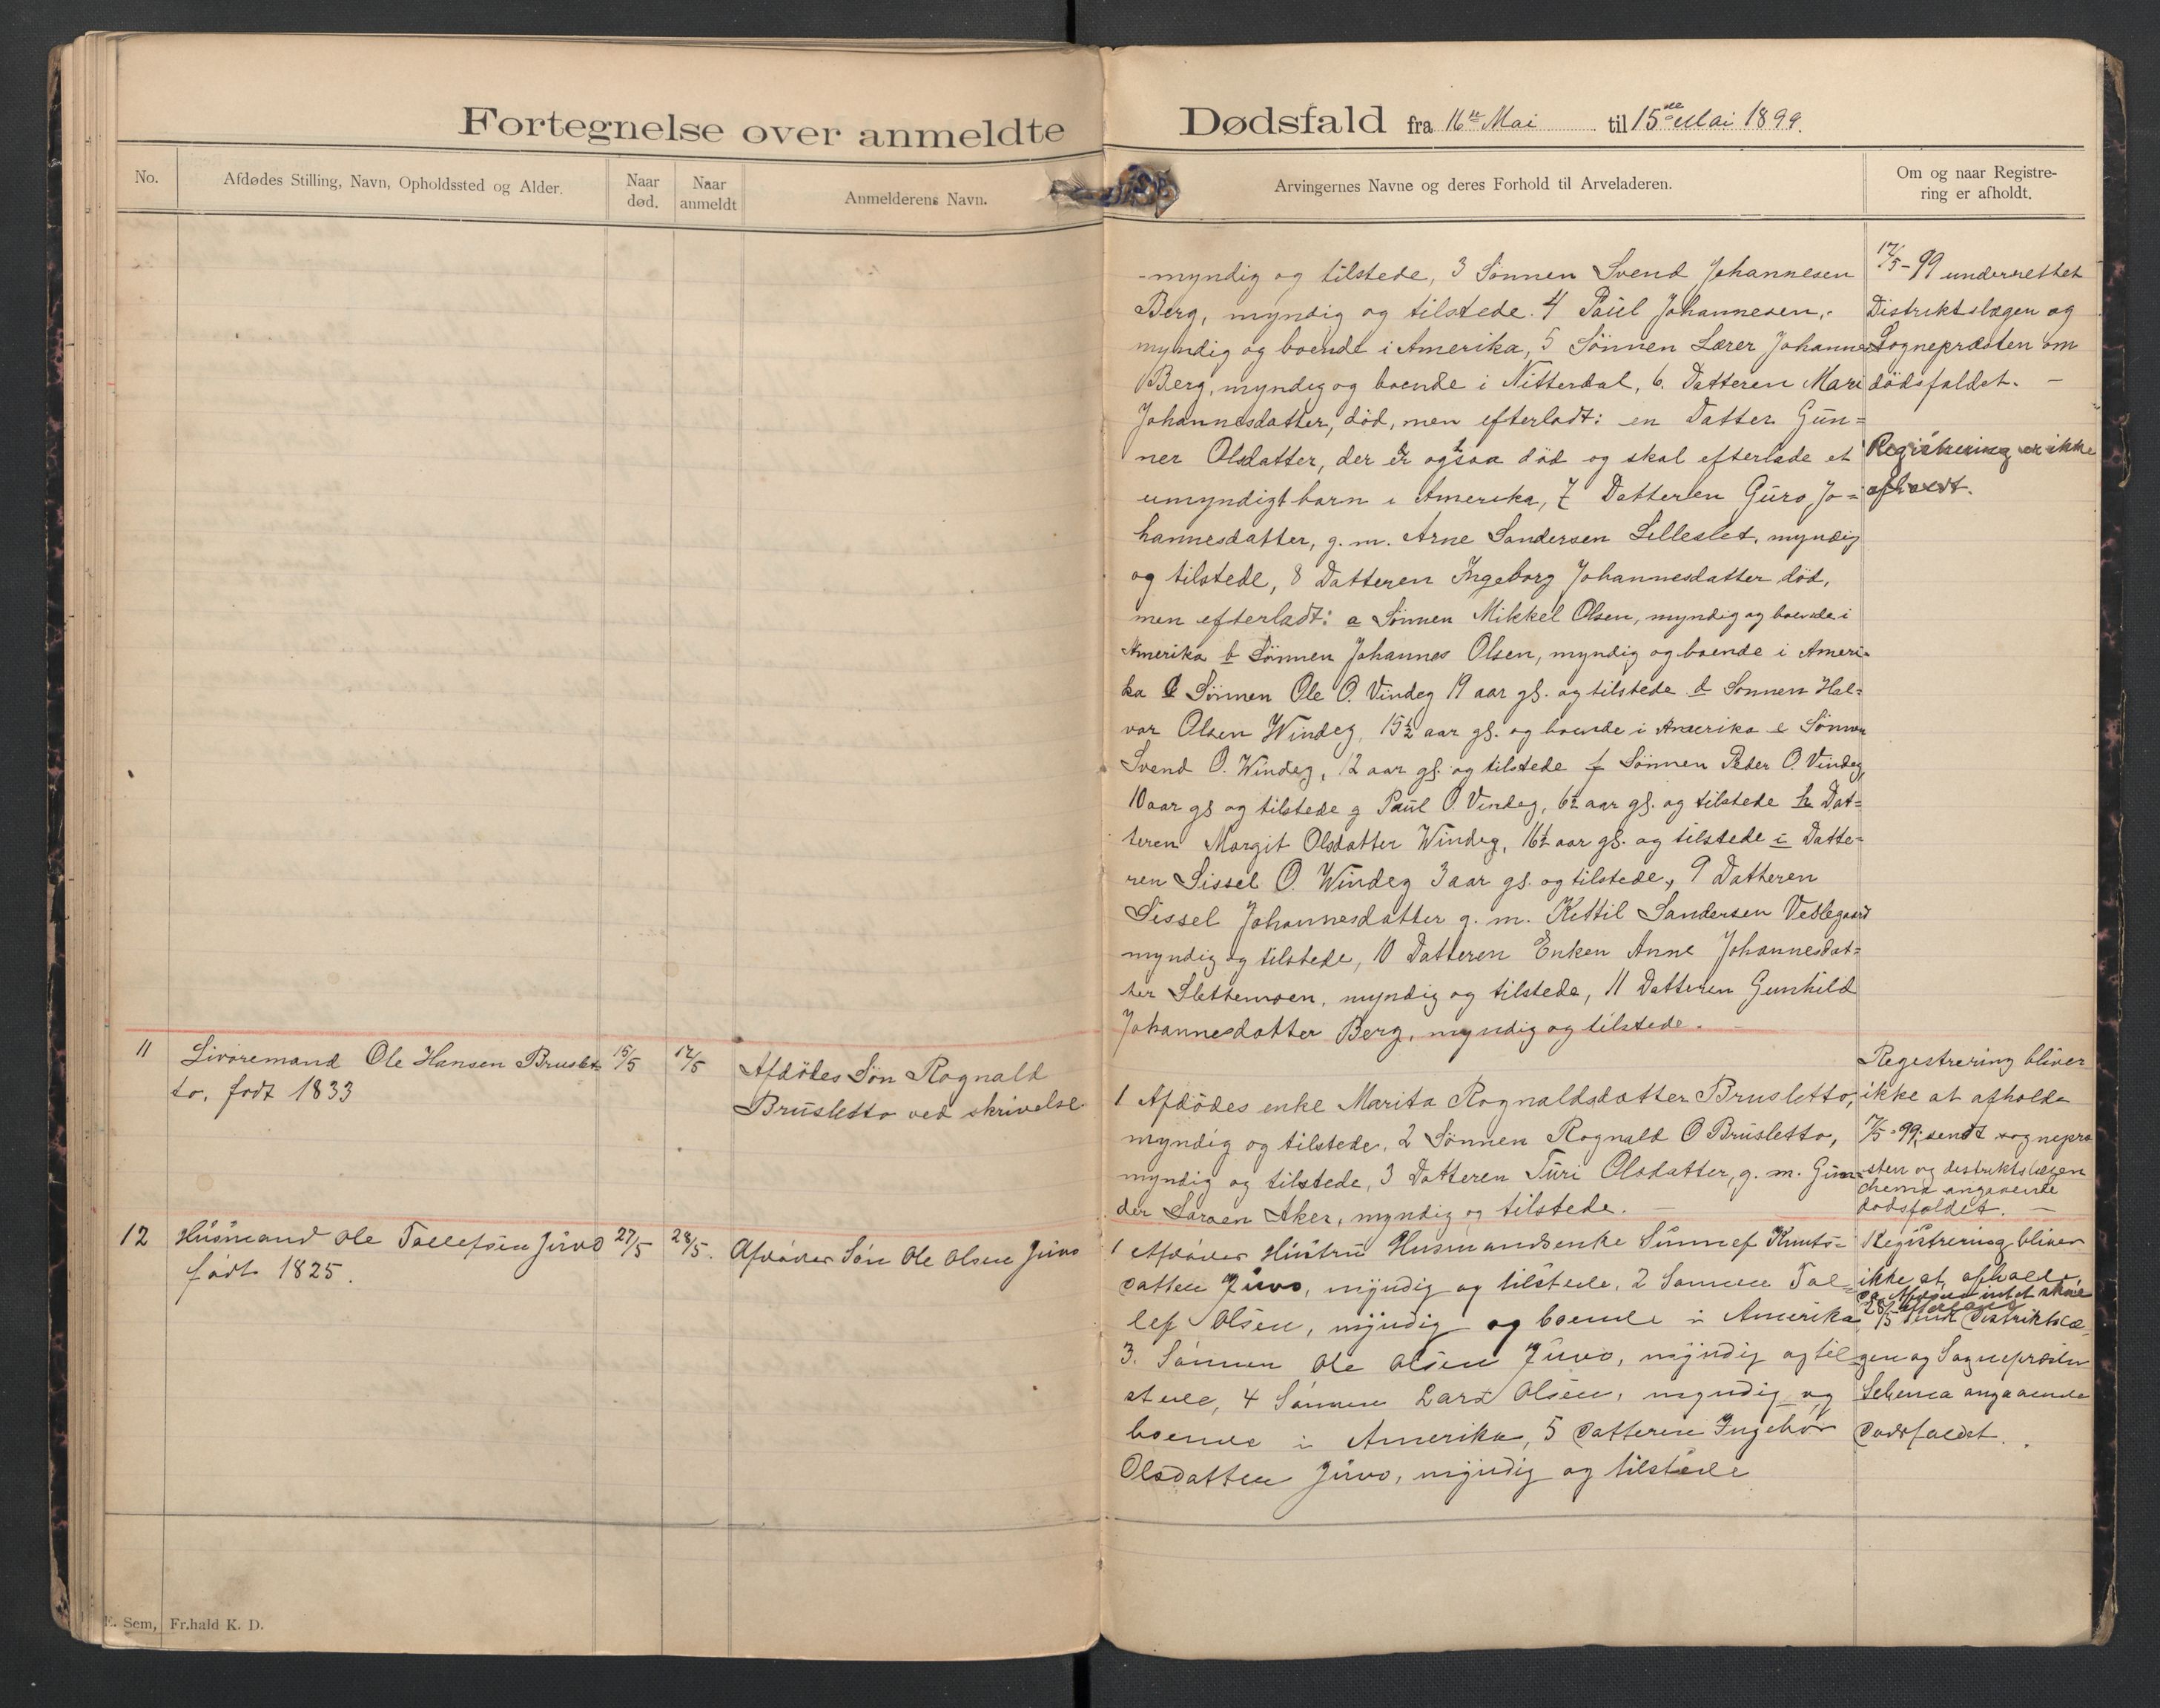 Fortegnelse over anmeldte Dødsfald fra 16de Mai til 15de Mai 1899.
No.
Afdødes Stilling, Navn, Opholdssted og Alder.
Naar død.
Naar anmeldt
Anmelderens Navn.
Arvingernes Navne og deres Forhold til Arveladeren.
Om og naar Registre-
ring er afholdt.
-myndig og tilstede, 3 Sönnen Svend Johannesen
Berg, myndig og tilstede. 4 Paul Johannesen,
myndig og boende i Amerika, 5 Sönnen Lærer Johannes
Berg, myndig og boende i Nitterdal, 6. Datteren Mari
Johannesdatter, död, men efterladt: en Datter Gun=
ner Olsdatter, der er ogsaa död og skal efterlade et
umyndigt barn i Amerika, 7 Datteren Guro Jo=
hannesdatter, g. m. Arne Sandersen Lilleslet, myndig
og tilstede, 8 Datteren Ingeborg Johannesdatter död,
men efterladt: a Sönnen Mikkel Olsen, myndig og boende i
Amerika b Sönnen Johannes Olsen, myndig og boende i Ameri=
ka c Sönnen Ole O. Vindeg 19 aar gl. og tilstede d Sonnen Hal=
vor Olsen Windeg, 15½ aar gl. og boende i Amerika e Sönnen
Svend O. Windeg, 12 aar gl. og tilstede f Sönnen Peder O. Vindeg,
10 aar gl og tilstede g Paul O. Vindeg, 6½ aar gl. og tilstede h Dat=
teren Margit Olsdatter Windeg, 16½ aar gl. og tilstede i Datte=
ren Sissel O. Windeg 3 aar gl. og tilstede, 9 Datteren
Sissel Johannesdatter g. m. Kittil Sandersen Veslegaard
myndig og tilstede, 10 Datteren Enken Anne Johannesdat=
ter Slettemoen, myndig og tilstede, 11 Datteren Gunhild
Johannesdatter Berg, myndig og tilstede.
17/5-99 underrettet
Distriktslægen og
Sognepræsten om
dödsfaldet. —
Registrering er ikke
afholdt.
11
Livöremand Ole Hansen Bruslet=
to, födt 1833
15/5
17/5
Afdödes Sön Rognald
Brusletto ved skrivelse
1 Afdödes enke Marita Rognaldsdatter Brusletto,
myndig og tilstede, 2 Sönnen Rognald O Brusletto,
myndig og tilstede, 3 Datteren Turi Olsdatter, g. m. Gun=
der Larsen Aker, myndig og tilstede. —
Registrering bliver
ikke at afholde
17/5-99, sendt sognepræ
sten og distriktslægen
chema angaaende
dødsfaldet. —
12
Husmand Ole Tollefsen Juvo
födt 1825.
27/5
28/5.
Afdödes Sön Ole Olsen Juvo
1 Afdödes Hustru Husmandsenke Sunnef Knuts=
datter Juvo, myndig og tilstede, 2 Sønnen Tol=
lef Olsen, myndig og boende i Amerika,
3. Sönnen Ole Olsen Juvo, myndig og til=
stede, 4 Sönnen Lars Olsen, myndig og
boende i Amerika, 5 Datteren Ingebor
Olsdatter Juvo, myndig og tilstede
Registrering bliver
ikke at afholde,
da Afdöde intet
28/5 sendt Distriktslæ=
gen og Sognepræsten
Schema angaaende
Dödsfaldet.
E. Sem, Fr.hald K. D.